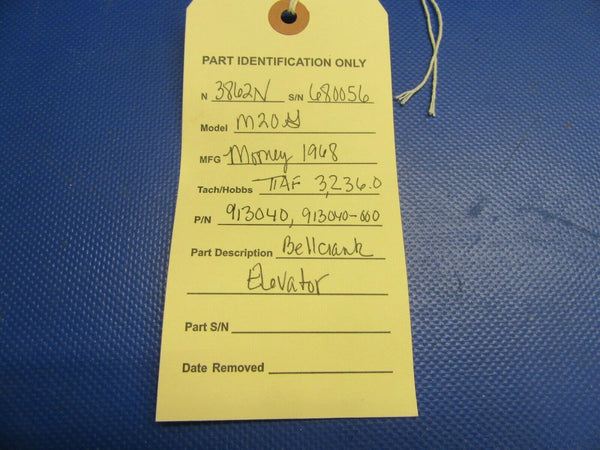 PART IDENTIFICATION ONLY
N 3862N S/N 680056
Model M20G
MFG Mooney 1968
Tach/Hobbs TTAF 3,236.0
P/N 913040, 913040-000
Part Description Bellcrank
Elevator
Part S/N
Date Removed